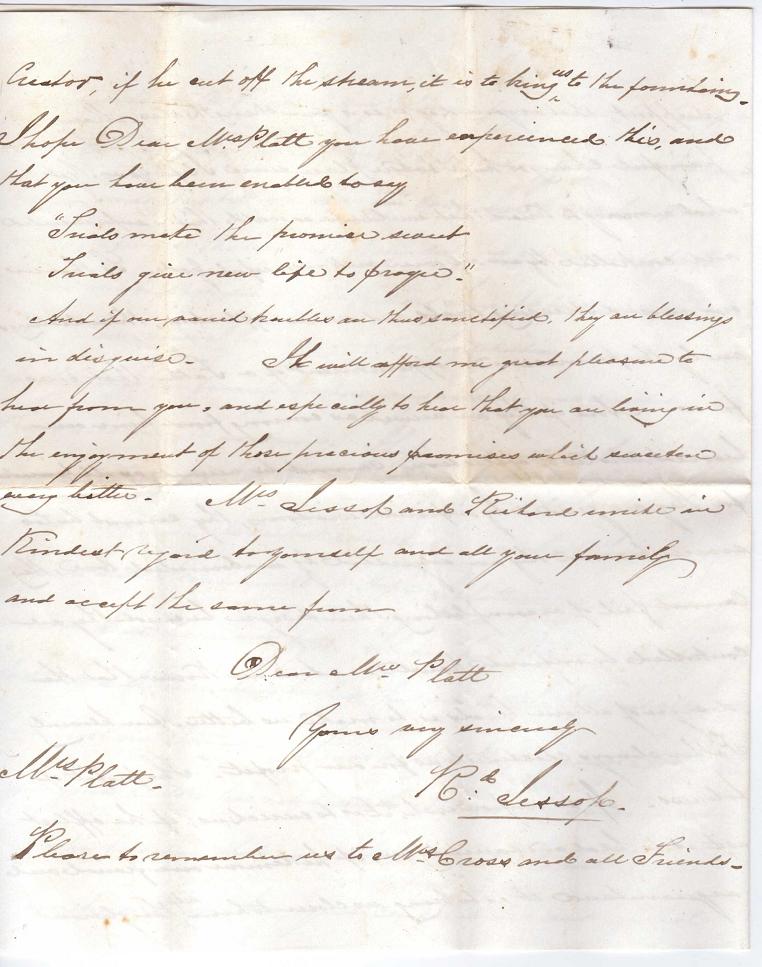 Creator, if he cut off the stream, it is to bring us to the fountain.
I hope Dear Mrs. Platt you have experienced this, and
that you have been enabled to say
"Trials make the promise sweet
Trials give new life to prayer."
And if our varied troubles are thus sanctified, they are blessings
in disguise. It will afford me great pleasure to
hear from you, and especially to hear that you are living in
the enjoyment of those precious promises which sweeten
every bitter. Mrs. Jessop and Richard unite in
Kindest regard to yourself and all your family
and accept the same from
Dear Mrs Platt
Yours very sincerely
Mrs Platt. Rd. Jessop.
Please to remember us to Mrs Cross and all Friends.